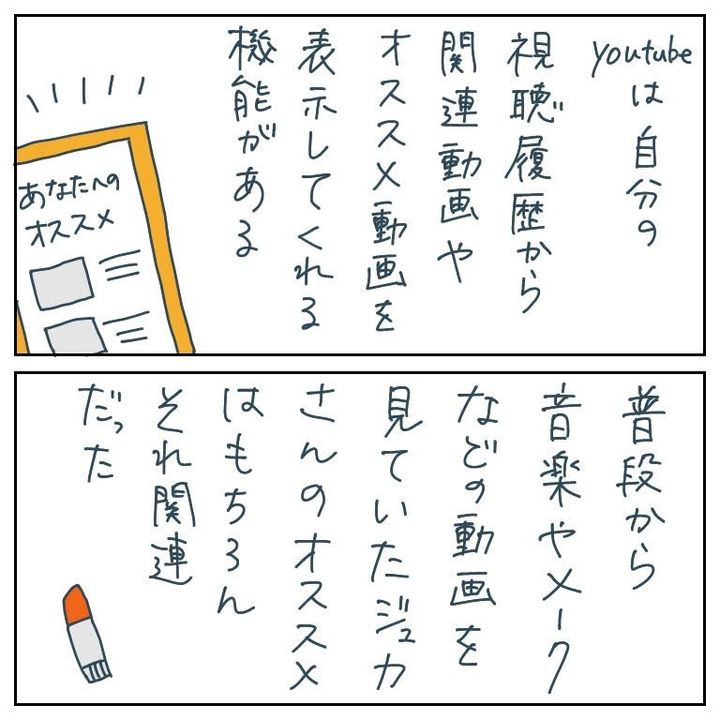 youtubeは自分の
視聴履歴から
関連動画や
オススメ動画を
表示してくれる
機能がある
あなたへの
オススメ
普段から
音楽やメーク
などの動画を
見ていたジュカ
さんのオススメ
はもちろん
それ関連
だった